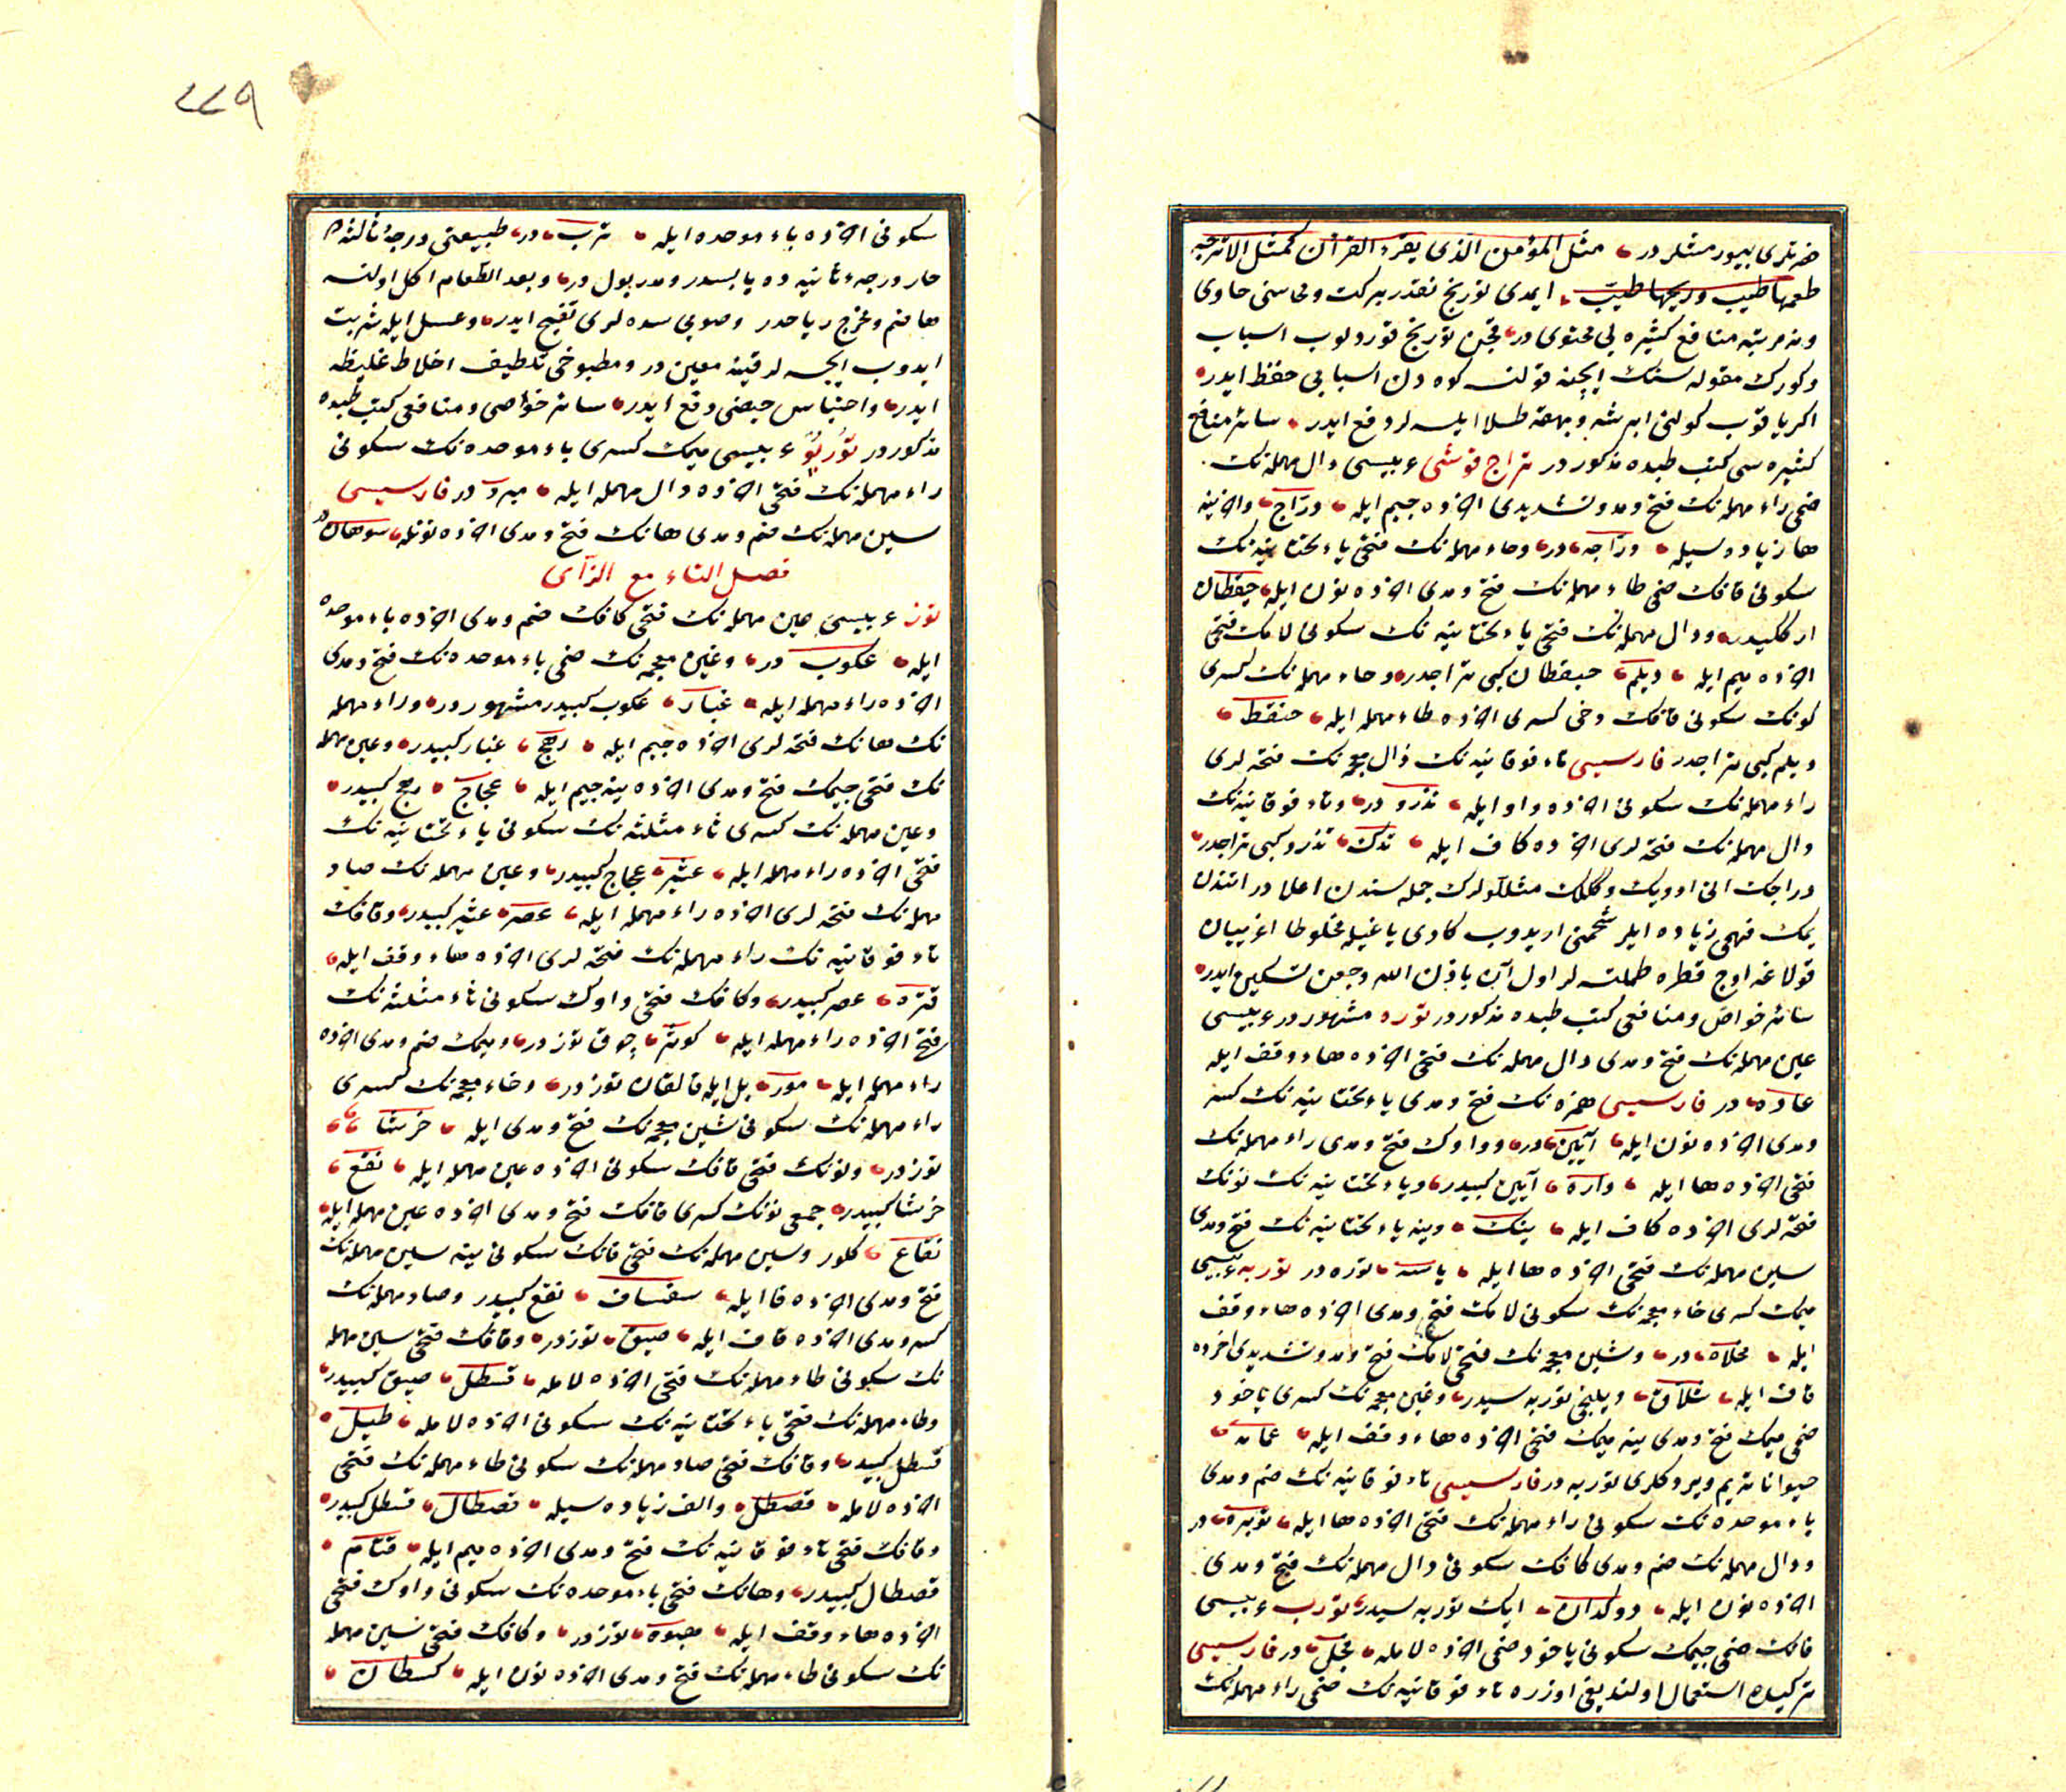 حضرتلری بیورمشلردر مثل المؤمن الذی یقرء القرآن كمثل الاترجه
طعمها طیب وریحها طیب ایمدی تورنج نقدر بركت ومحاسنی حاوی
ونه مرتبه منافع كثیره یی محتوی در قچن تورنج قورودلوب اسباب
وكورك مقوله سنك ایچنه قونلسه كوه دن اسبابی حفظ ایدر
اكر یاقوب كولنی ابرشه وبهقه طلا ایلسه لر دفع ایدر سائر منافع
كثیره سی كتب طبده مذكوردر تراج قوشی عربیسی دال مهمله نك
ضمی راء مهمله نك فتح ومد وتشدیدی آخرده جیم ایله دراج وآخرینه
ها زیاده سیله دراجه در وحاء مهمله نك فتحی یاء تحتانیه نك
سكونی قافك ضمی طاء مهمله نك فتح ومدی آخرده نون ایله حیقطان
ارككیدر ودال مهمله نك فتحی یاء تحتانیه نك سكونی لامك فتحی
آخرده میم ایله دیلم حیقطان كبی تراجدر وحاء مهمله نك كسری
نونك سكونی قافك دخی كسری آخرده طاء مهمله ایله حنقط
دیلم كبی تراجدر فارسیسی تاء فوقانیه نك ذال معجمه نك فتحه لری
راء مهمله نك سكونی آخرده واو ایله تذرو در وتاء فوقانیه نك
دال مهمله نك فتحه لری آخرده كاف ایله تدك تذرو كبی تراجدر
دراجك اتی اوویك وككلك مثللولرك جمله سندن اعلادر اتندن
یمك فهمی زیاده ایلر شحمنی اریدوب كادی یاغیله مخلوطا اغرییان
قولاغه اوچ قطره طملتسه لر اول آن باذن الله وجعن تسكین ایدر
سائر خواص ومنافعی كتب طبده مذكوردر توره مشهوردر عربیسی
عین مهمله نك فتح ومدی دال مهمله نك فتحی آخرده هاء وقف ایله
عاده در فارسیسی همزه نك فتح ومدی یاء تحتانیه نك كسر
ومدی آخرده نون ایله آیین در وواوك فتح ومدی راء مهمله نك
فتحی آخرده ها ایله واره آیین كبیدر ویاء تحتانیه نك نونك
فتحه لری آخرده كاف ایله ینك وینه یاء تحتانیه نك فتح ومدی
سین مهمله نك فتحی آخرده ها ایله یاسه توره در توربه عربیسی
میمك كسری خاء معجمه نك سكونی لامك فتح ومدی آخرده هاء وقف
ایله مخلاه در وشین معجمه نك فتحی لامك فتح ومد وتشدیدی آخرده
قاف ایله شلاق دیلنجی توربه سیدر وغین معجمه نك كسری یاخود
ضمی میمك فتح ومدی ینه میمك فتحی آخرده هاء وقف ایله غمامه
حیواناته یم ویردكلری توربه در فارسیسی تاء فوقانیه نك ضم ومدی
باء موحده نك سكونی راء مهمله نك فتحی آخرده ها ایله توبره در
ودال مهمله نك ضم ومدی كافك سكونی دال مهمله نك فتح ومدی
آخرده نون ایله دوكدان ایك توربه سیدر تورب عربیسی
فانك ضمی جیمك سكونی یاخود ضمی آخرده لامله فجل در فارسیسی
تركیده استعمال اولندیغی اوزره تاء فوقانیه نك ضمی راء مهمله نك
٢٢٩
سكونی آخرده باء موحده ایله ترب در طبیعتی درجۀ ثالثه ده
حار ودرجۀ ثانیه ده یابسدر ومدر بول در وبعد الطعام اكل اولنسه
هاضم ومخرج ریاحدر وصویی سده لری تفتیح ایدر وعسل ایله شربت
ایدوب ایچسه لر قیئه معین در ومطبوخی تلطیف اخلاط غلیظه
ایدر واحتباس حیضی دفع ایدر سائر خواصی ومنافعی كتب طبده
مذكوردر تورپو عربیسی میمك كسری باء موحده نك سكونی
راء مهمله نك فتحی آخرده دال مهمله ایله مبرد در فارسیسی
سین مهمله نك ضم ومدی هانك فتح ومدی آخرده نونله سوهان در
فصل التاء مع الزآی
توز عربیسی عین مهمله نك فتحی كافك ضم ومدی آخرده باء موحده
ایله عكوب در وغین معجمه نك ضمی باء موحده نك فتح ومدی
آخرده راء مهمله ایله غبار عكوب كبیدر مشهوردر وراء مهمله
نك هانك فتحه لری آخرده جیم ایله رهج غبار كبیدر وعین مهمله
نك فتحی جیمك فتح ومدی آخرده ینه جیم ایله عجاج رهج كبیدر
وعین مهمله نك كسری ثاء مثلثه نك سكونی یاء تحتانیه نك
فتحی آخرده راء مهمله ایله عثیر عجاج كبیدر وعین مهمله نك صاد
مهمله نك فتحه لری آخرده راء مهمله ایله عصر عثیر كبیدر وقافك
تاء فوقانیه نك راء مهمله نك فتحه لری آخرده هاء وقف ایله
قتره عصر كبیدر وكافك فتحی واوك سكونی ثاء مثلثه نك
فتحی آخرده راء مهمله ایله كوثر چوق توز در ومیمك ضم ومدی آخرده
راء مهمله ایله مور یل ایله قالقان توز در وخاء معجمه نك كسری
راء مهمله نك سكونی شین معجمه نك فتح ومدی ایله خرشا
توز در ونونك فتحی قافك سكونی آخرده عین مهمله ایله نقع
خرشا كبیدر جمعی نونك كسری قافك فتح ومدی آخرده عین مهمله ایله
نقاع كلور وسین مهمله نك فتحی فانك سكونی ینه سین مهمله نك
فتح ومدی آخرده فا ایله سفساف نقع كبیدر وصاد مهمله نك
كسر ومدی آخرده قاف ایله صیق توز در وقافك فتحی سین مهمله
نك سكونی طاء مهمله نك فتحی آخرده لامله قسطل صیق كبیدر
وطاء مهمله نك فتحی یاء تحتانیه نك سكونی آخرده لامله طیل
قسطل كبیدر وقافك فتحی صاد مهمله نك سكونی طاء مهمله نك فتحی
آخرده لامله قصطل والف زیاده سیله قصطال قسطل كبیدر
وقافك فتحی تاء فوقانیه نك فتح ومدی آخرده میم ایله قتام
قصطال كبیدر وهانك فتحی باء موحده نك سكونی واوك فتحی
آخرده هاء وقف ایله هبوه توز در وكافك فتحی سین مهمله
نك سكونی طاء مهمله نك فتح ومدی آخرده نون ایله كسطان